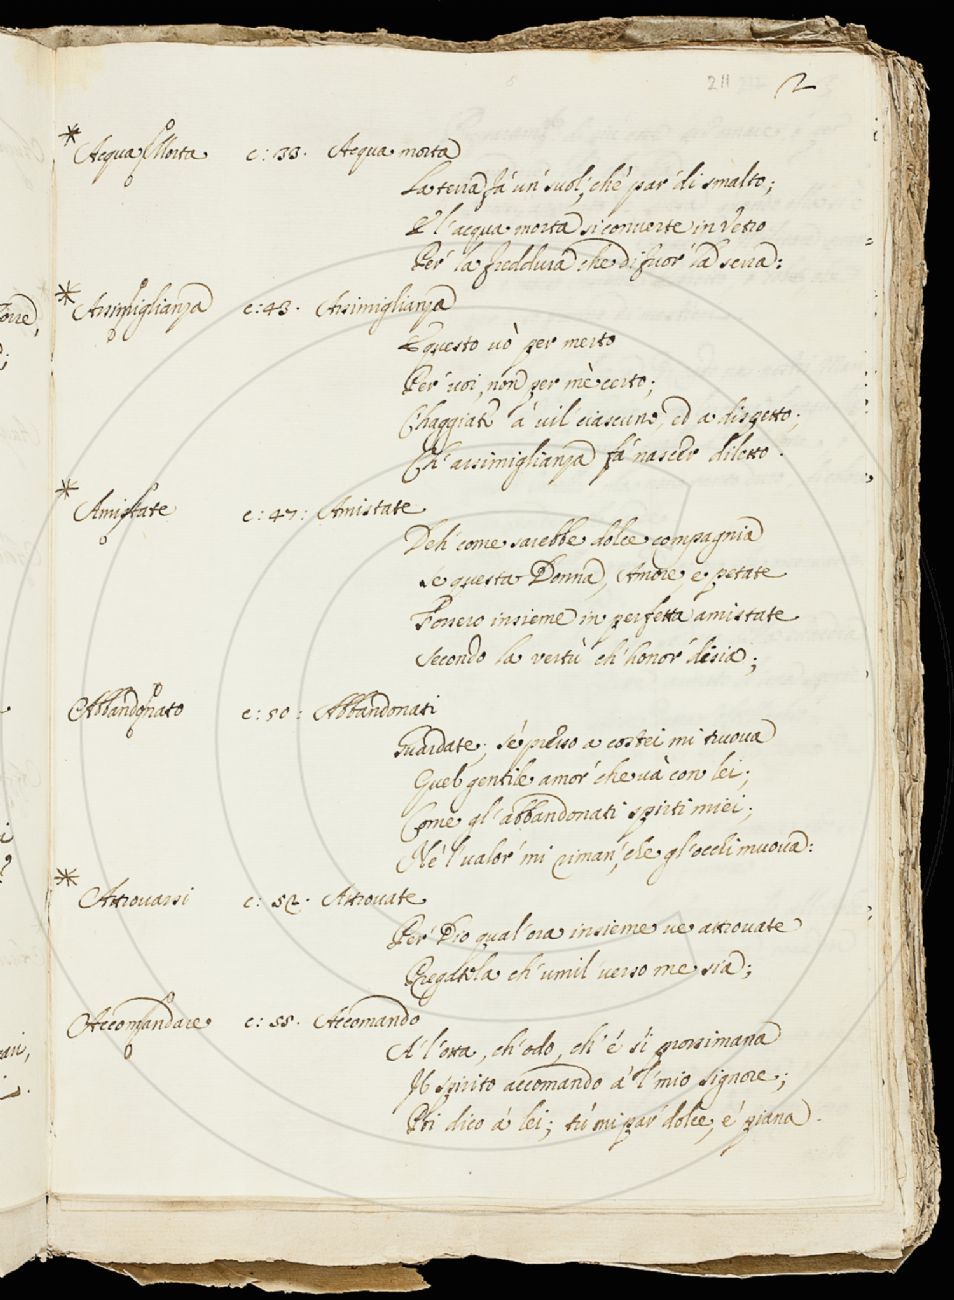 211 2
* Acqua Morta c: 33. Acqua morta
La terra fà un' suol', che' par' di smalto;
E l'acqua morta si conuerte in Vetro
Per' la freddura che di fuor' la serra:
* Assimiglianza c: 43. Assimiglianza
E questo vò per merto
Per' voi, non per mè certo;
Ch'aggiate à vil ciascuno, ed a dispetto;
Ch' assimiglianza fà nascer diletto.
* Amistate c: 47: Amistate
Deh' come sarebbe dolce compagnia
Se questa Donna, Amore e pietate
Fossero insieme in perfetta amistate
Secondo la vertù ch' honor' desia;
Abbandonato c: 50: Abbandonati
Guardate; sè presso a costei mi truoua
Quel gentile amor' che và con lei;
Come gl' abbandonati spirti miei;
Nè l' valor' mi riman', che gl'occhi muoua:
* Attrouarsi c: 52. Attrouate
Per' Dio qual'ora insieme ve attrouate
Pregatela ch' umil' verso me sia;
Accomandare c: 55. Accomando
A' l'otta, ch'odo, ch' é si prossimana
Il spirito accomando à l' mio signore;
Poi dico à lei; tù mi par' dolce, e' piana.